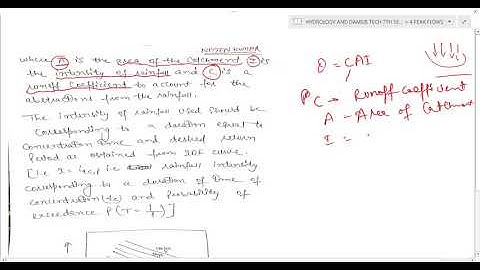 HYDROLOGY AND DAMS(B TECH 7TH SE...
4 PEAK FLOWS
NITIN KUMAR
where A is the area of the catchment I is
the intensity of rainfall and C is a
runoff coefficient to account for the
abstractions from the rainfall.
The intensity of rainfall used should be
corresponding to a duration equal to
concentration time and desired return
Period as obtained from IDF curve.
[i.e I = itc,p i.e rainfall intensity
corresponding to a duration of time of
concentration (tc) and probability of
exceedence P (T = 1/T)]
Q = CAI
C → Runoff-Coefficient
A - Area of Catchment
I =